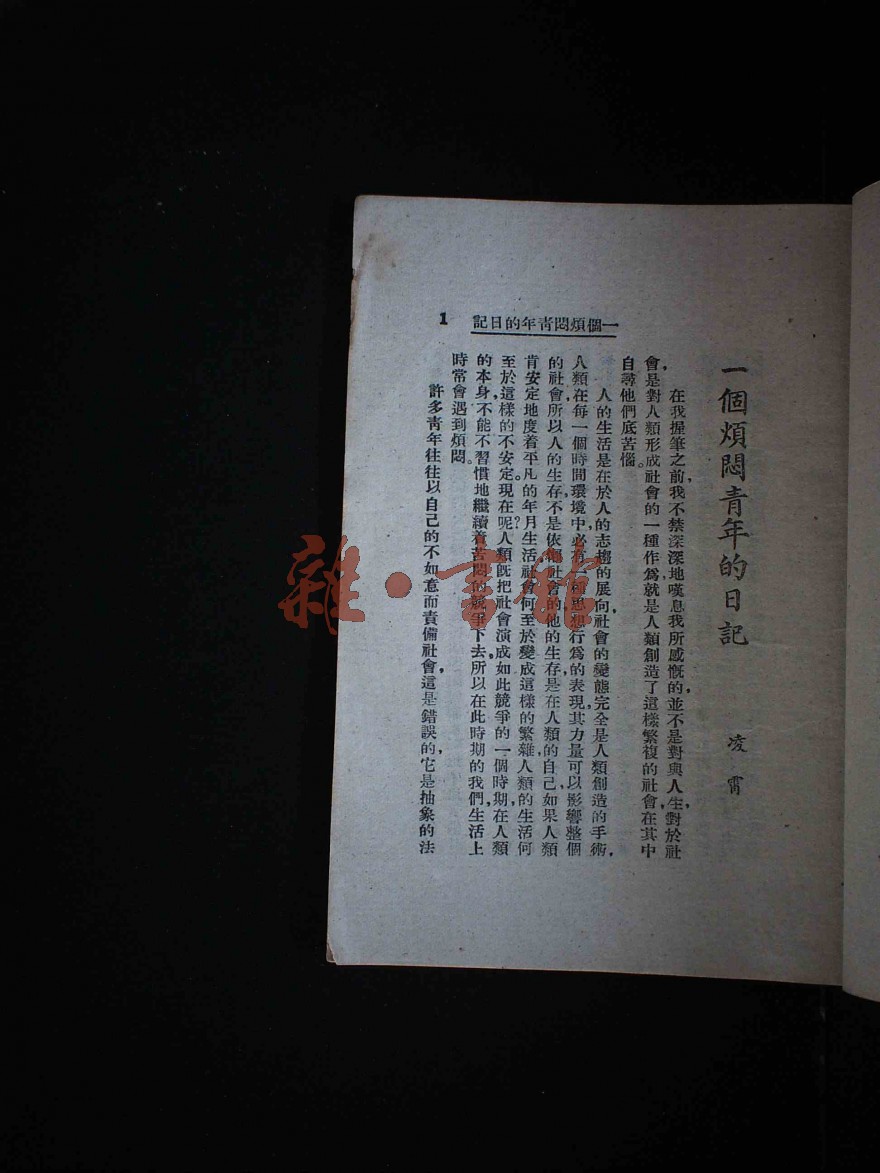 一個煩悶青年的日記
凌霄
在我握筆之前，我不禁深深地嘆息我所感慨的，並不是對與人生，對於社
會，是對人類形成社會的一種作爲就是人類創造了這樣繁複的社會，在其中
自尋他們底苦惱。
人的生活是在於人的志趨的展向社會的變態完全是人類創造的手術，
人類在每一個時間環境中，必有一種思想行爲的表現，其力量可以影響整個
的社會所以人的生存，不是依賴社會的，他的生存是在人類的自己如果人類
肯安定地度着平凡的年月生活，社會何至於變成這樣的繁雜，人類的生活何
至於這樣的不安定。現在呢？人類既把社會演成如此競爭的一個時期，在人類
的本身，不能不習慣地繼續着苦悶的競爭下去，所以在此時期的我們，生活上
時常會遇到煩悶。
許多青年往往以自己的不如意而責備社會，這是錯誤的，它是抽象的法
一個煩悶青年的日記
1
雜·書館